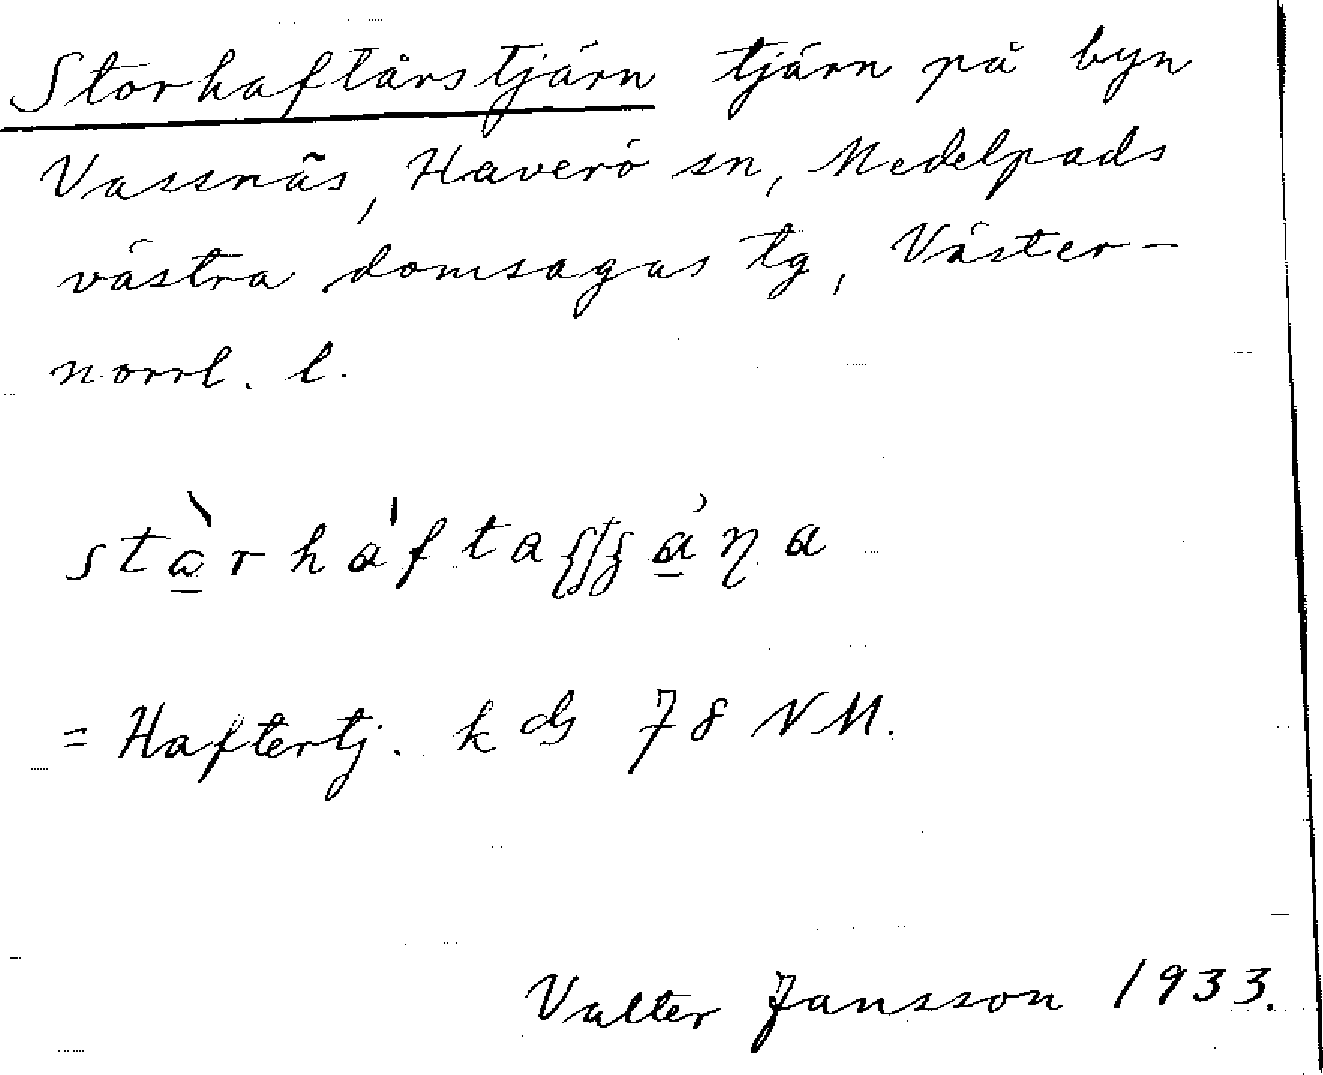 Storhaftårstjärn tjärn på byn
Vassnäs, Haverö sn, Medelpads
västra domsagas tg, Väster-
norrl. l.
= Haftertj. k bl 78 NM.
Valter Jansson 1933.